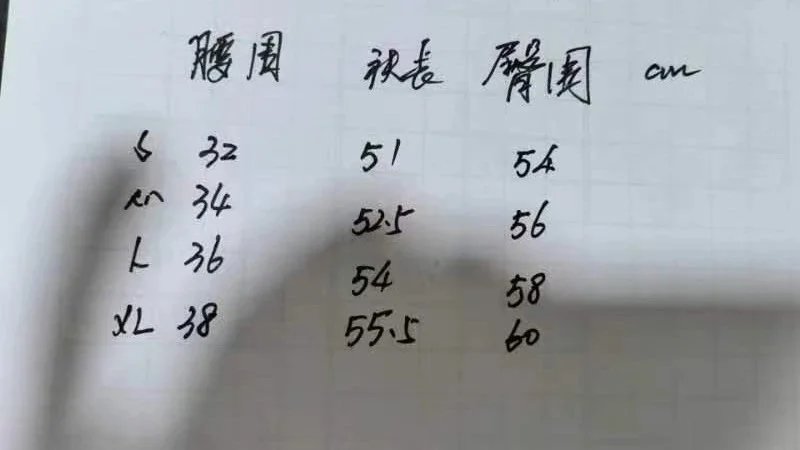 腰围 裤长 臀围 cm
S 32 51 54
m 34 52.5 56
L 36 54 58
XL 38 55.5 60